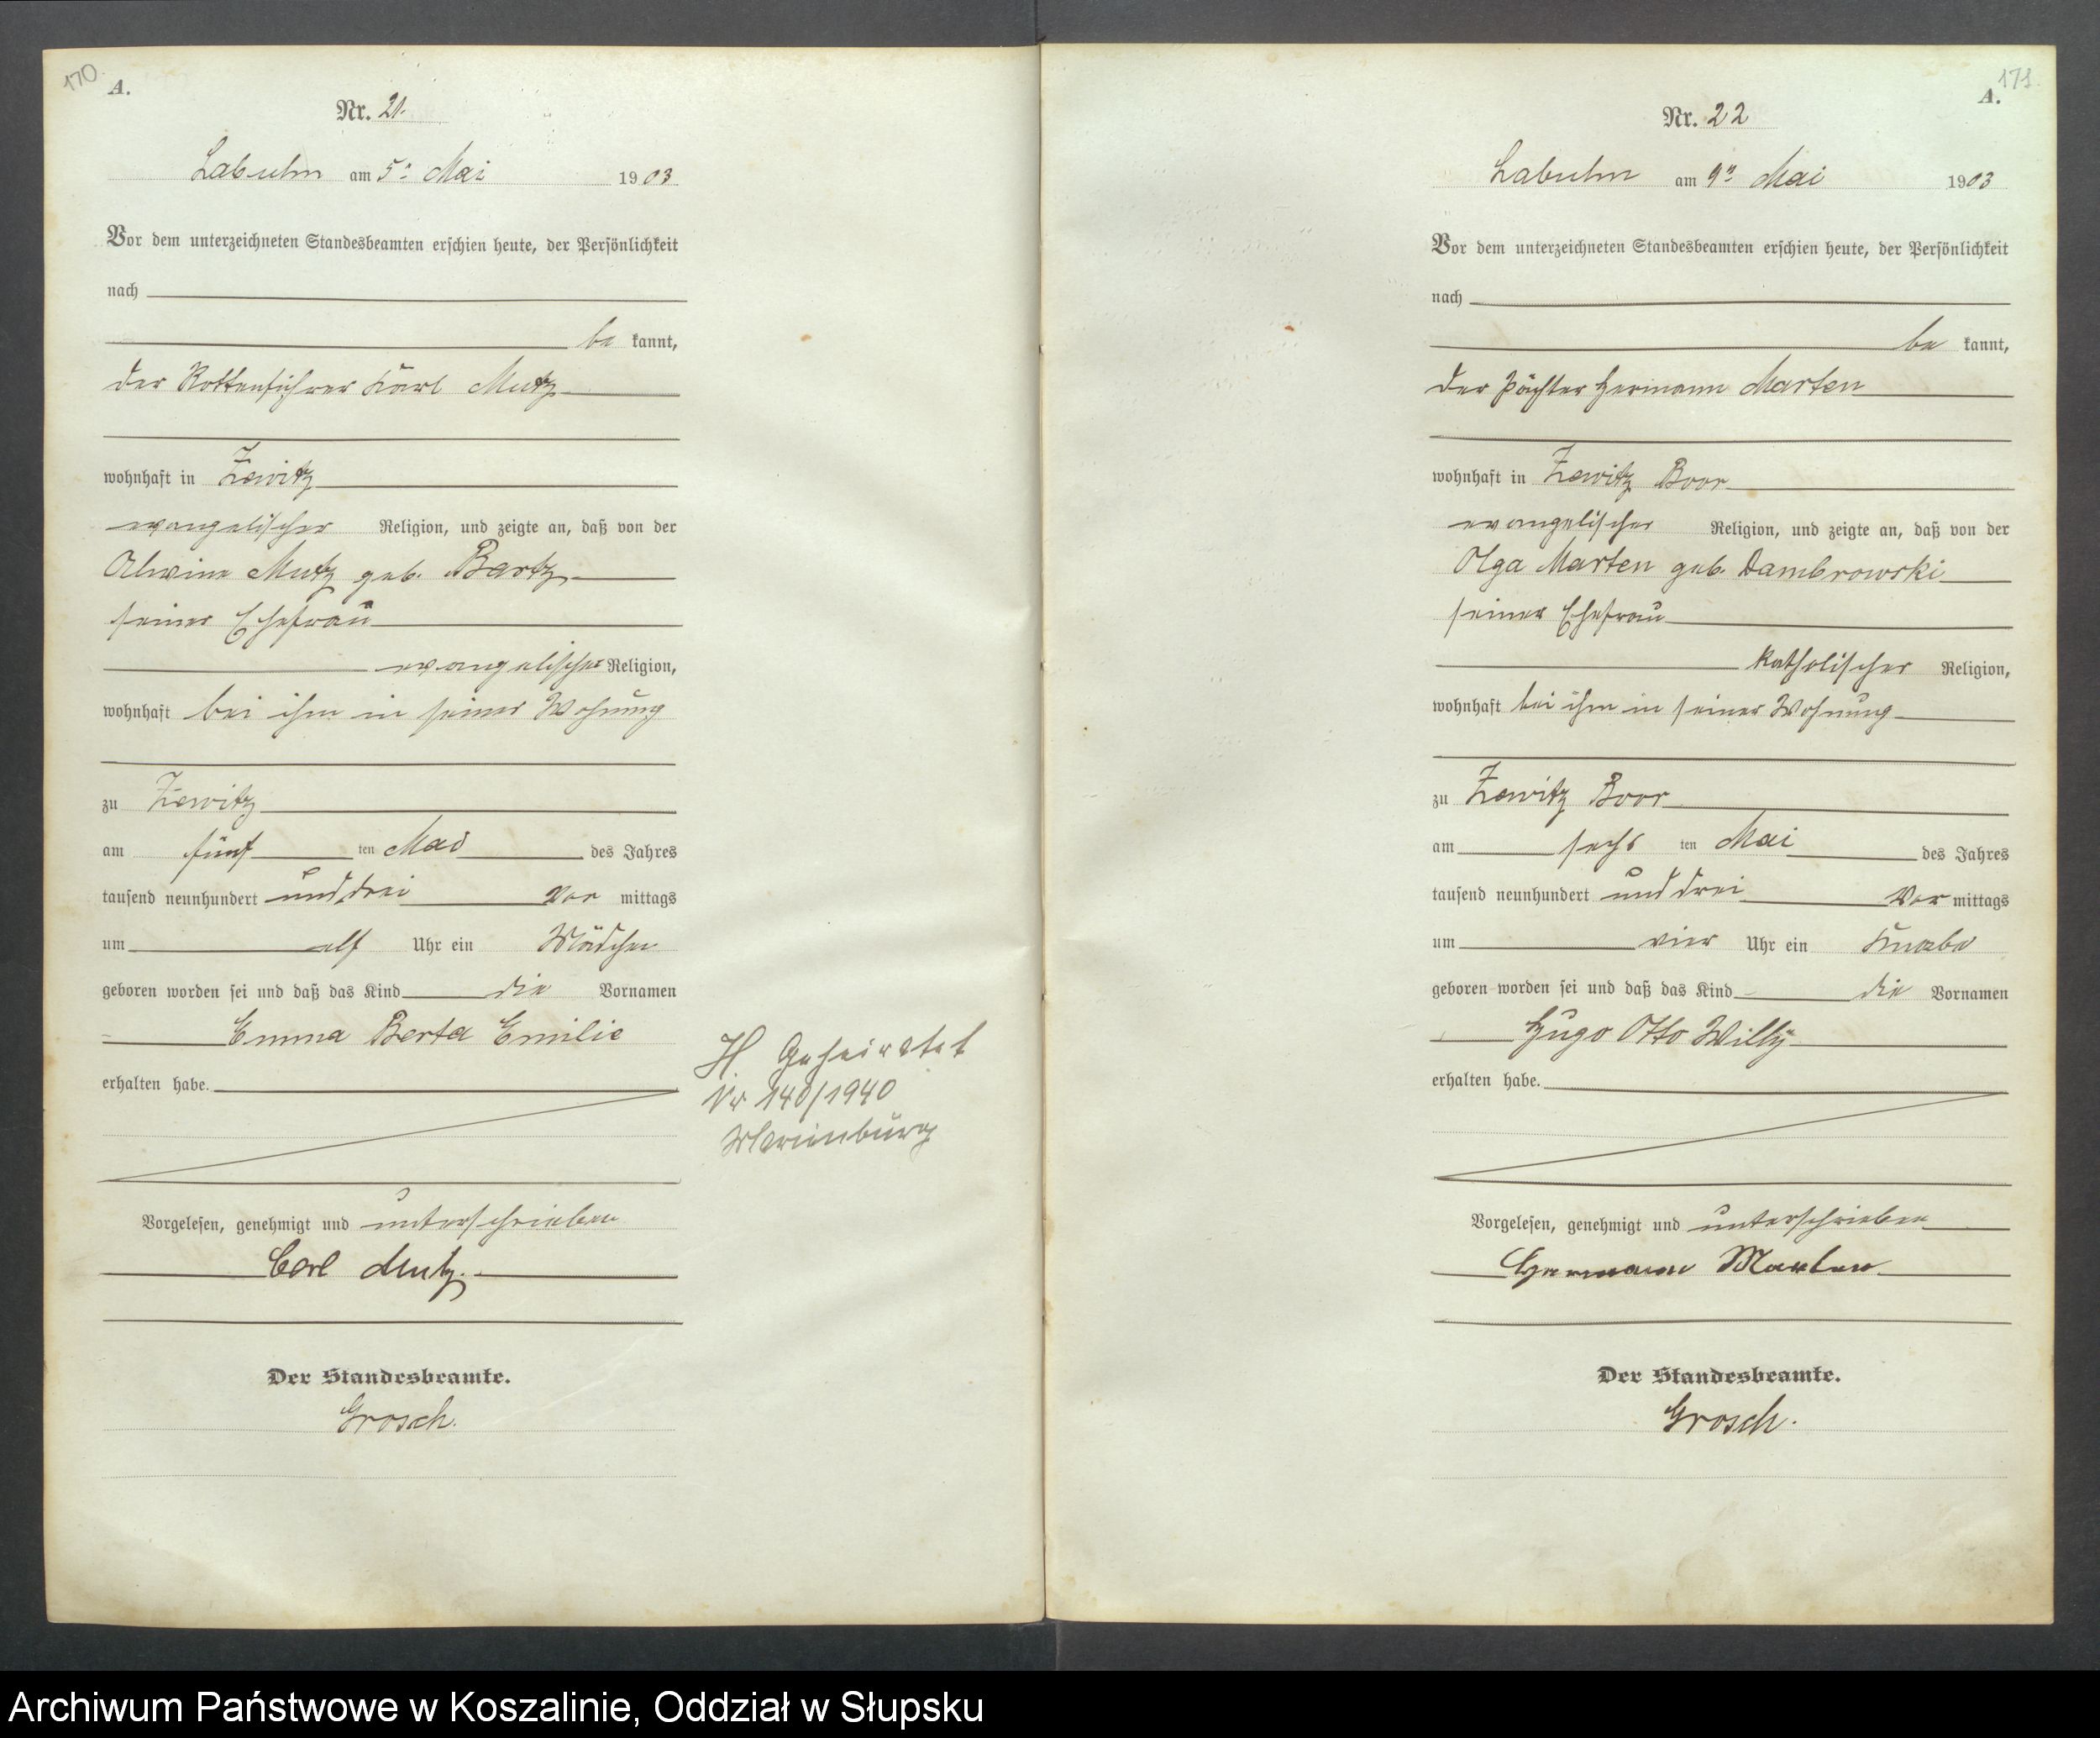 170
A.
Nr. 21.
Labuhn am 5n Mai 1903
Vor dem unterzeichneten Standesbeamten erschien heute, der Persönlichkeit
nach
be kannt,
der Rottenführer Karl Mutz
wohnhaft in Zewitz
evangelischer Religion, und zeigte an, daß von der
Alwine Mutz geb. Bartz
seiner Ehefrau
evangelischer Religion,
wohnhaft bei ihm in seiner Wohnung
zu Zewitz
am fünf ten Mai des Jahres
tausend neunhundert und drei vor mittags
um elf Uhr ein Mädchen
geboren worden sei und daß das Kind die Vornamen
Emma Berta Emilie
erhalten habe.
H. Geheiratet
Nr 140/1940
Marienburg
Vorgelesen, genehmigt und unterschrieben
Carl Mutz.
Der Standesbeamte.
Grosch.
171
A.
Nr. 22
Labuhn am 9n Mai 1903
Vor dem unterzeichneten Standesbeamten erschien heute, der Persönlichkeit
nach
be kannt,
der Pächter Hermann Marten
wohnhaft in Zewitz Boor
evangelischer Religion, und zeigte an, daß von der
Olga Marten geb. Dambrowski
seiner Ehefrau
katholischer Religion,
wohnhaft bei ihm in seiner Wohnung
zu Zewitz Boor
am sechs ten Mai des Jahres
tausend neunhundert und drei Vor mittags
um vier Uhr ein Knabe
geboren worden sei und daß das Kind die Vornamen
Hugo Otto Willy
erhalten habe.
Vorgelesen, genehmigt und unterschrieben
Hermann Marten
Der Standesbeamte.
Grosch.
Archiwum Państwowe w Koszalinie, Oddział w Słupsku